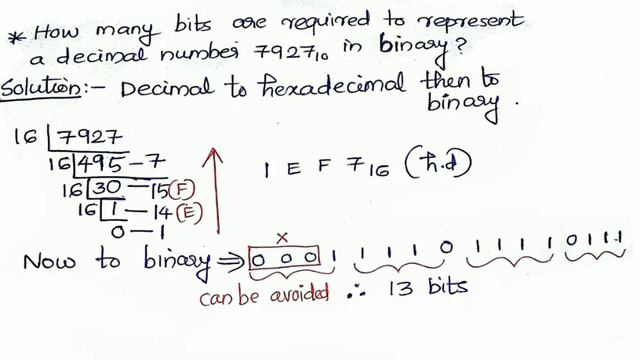 * How many bits are required to represent
a decimal number 7927₁₀ in binary?
Solution:- Decimal to hexadecimal then to
binary.
16 7927
16 495 - 7
16 30 - 15 (F)
16 1 - 14 (E)
0 - 1
1 E F 7₁₆ (h.d)
x
Now to binary ⇒ 0 0 0 1 1 1 1 0 1 1 1 1 0 1 1 1
can be avoided ∴ 13 bits